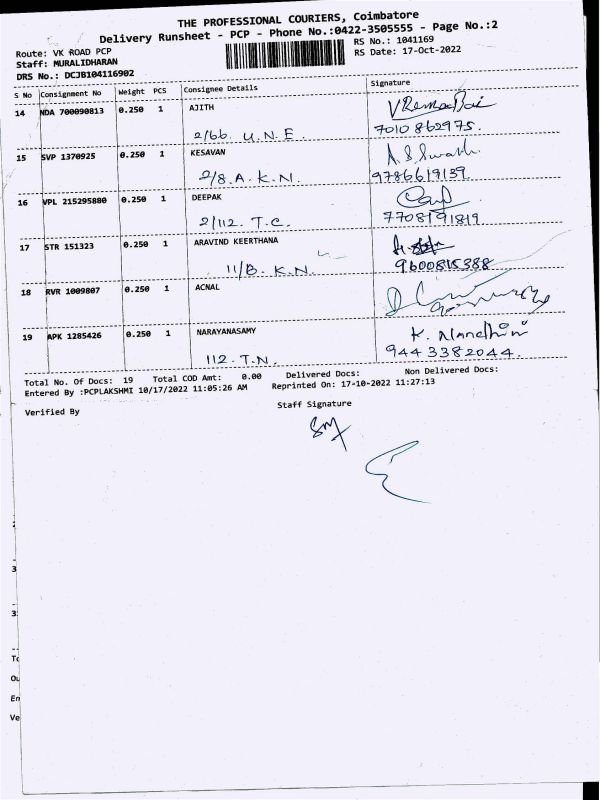 THE PROFESSIONAL COURIERS, Coimbatore
Delivery Runsheet - PCP - Phone No.:0422-3505555 - Page No.:2
Route: VK ROAD PCP
Staff: MURALIDHARAN
DRS No.: DCJB104116902
RS No.: 1041169
RS Date: 17-Oct-2022
S No Consignment No Weight PCS Consignee Details Signature
14 NDA 700090813 0.250 1 AJITH
2/66. U.N.E. 7010862975.
15 SVP 1370925 0.250 1 KESAVAN
2/8.A.K.N. 9786619139
16 VPL 215295880 0.250 1 DEEPAK
2/112. T.C. 7708191819
17 STR 151323 0.250 1 ARAVIND KEERTHANA
11/B. K.N. 9600815388
18 RVR 1009807 0.250 1 ACNAL
19 APK 1285426 0.250 1 NARAYANASAMY K. Nandhini
112. T.N. 9443382044.
Total No. Of Docs: 19 Total COD Amt: 0.00 Delivered Docs: Non Delivered Docs:
Entered By :PCPLAKSHMI 10/17/2022 11:05:26 AM Reprinted On: 17-10-2022 11:27:13
Verified By Staff Signature
3
3
To
Ou
En
Ve